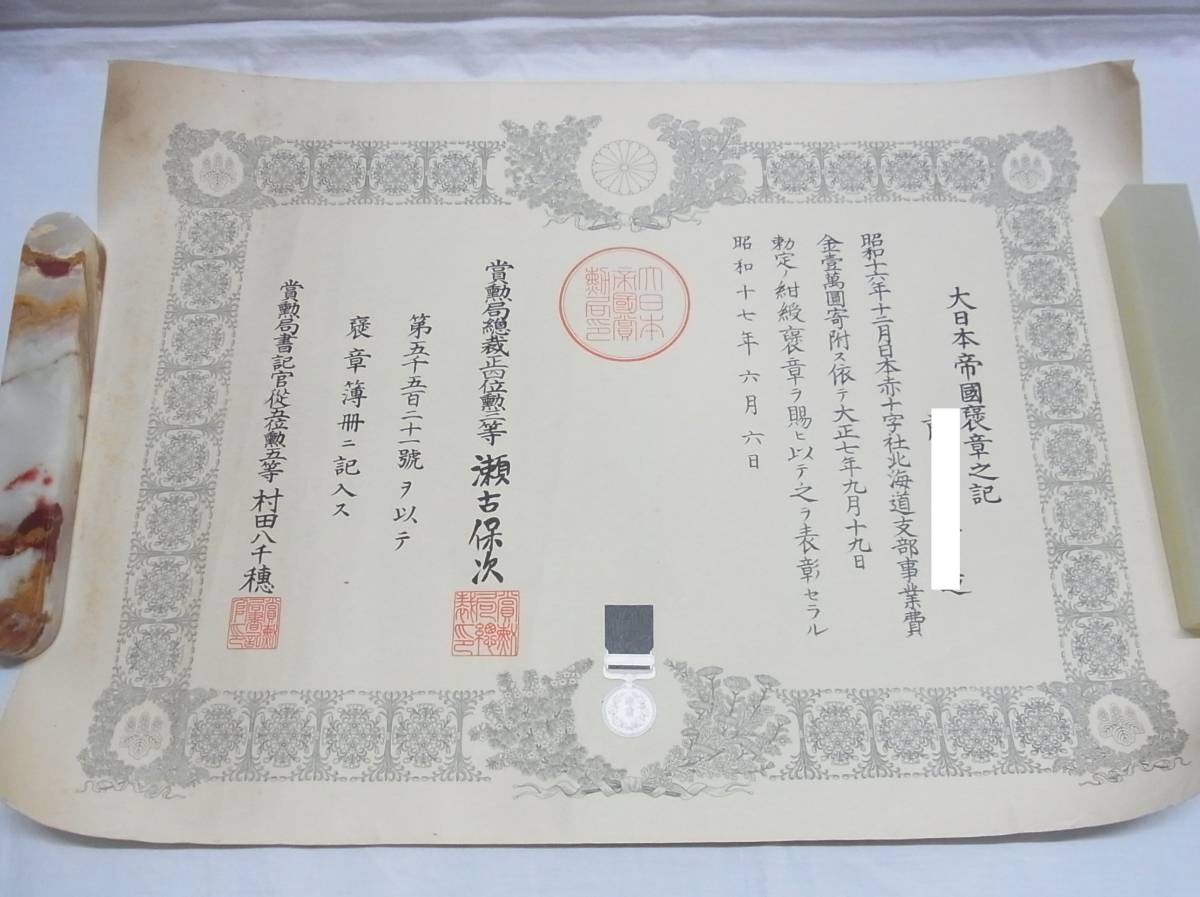 大日本帝國褒章之記
昭和十六年十二月日本赤十字社北海道支部事業費
金壹萬圓寄附ス依テ大正七年九月十九日
勅定ノ紺綬褒章ヲ賜ヒ以テ之ヲ表彰セラル
昭和十七年六月六日
大日本
帝國賞
勳局印
賞勲局總裁正四位勲二等 瀬古保次
賞勳
局總
裁印
第五千五百二十一號ヲ以テ
褒章簿冊ニ記入ス
賞勲局書記官従五位勲五等 村田八千穗
賞勳
局書記
官印